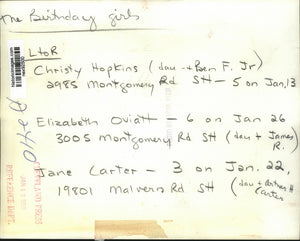 The Birthday girls
LtoR
Christy Hopkins (dau → Ben F. Jr)
2985 Montgomery Rd SH - 5 on Jan, 13
Elizabeth Oviatt - 6 on Jan 26
3005 Montgomery Rd SH (dau + James
R.
Jane Carter - 3 on Jan. 22,
19801 Malvern Rd SH (dau + Arthur H
Carter
REFERENCE DEPT.